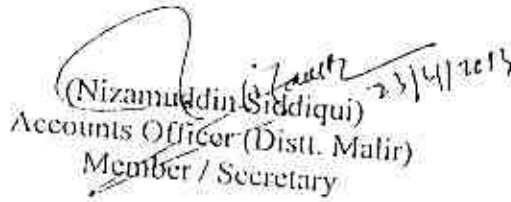 23/4/2013
(Nizamuddin Siddiqui)
Accounts Officer (Distt. Malir)
Member / Secretary